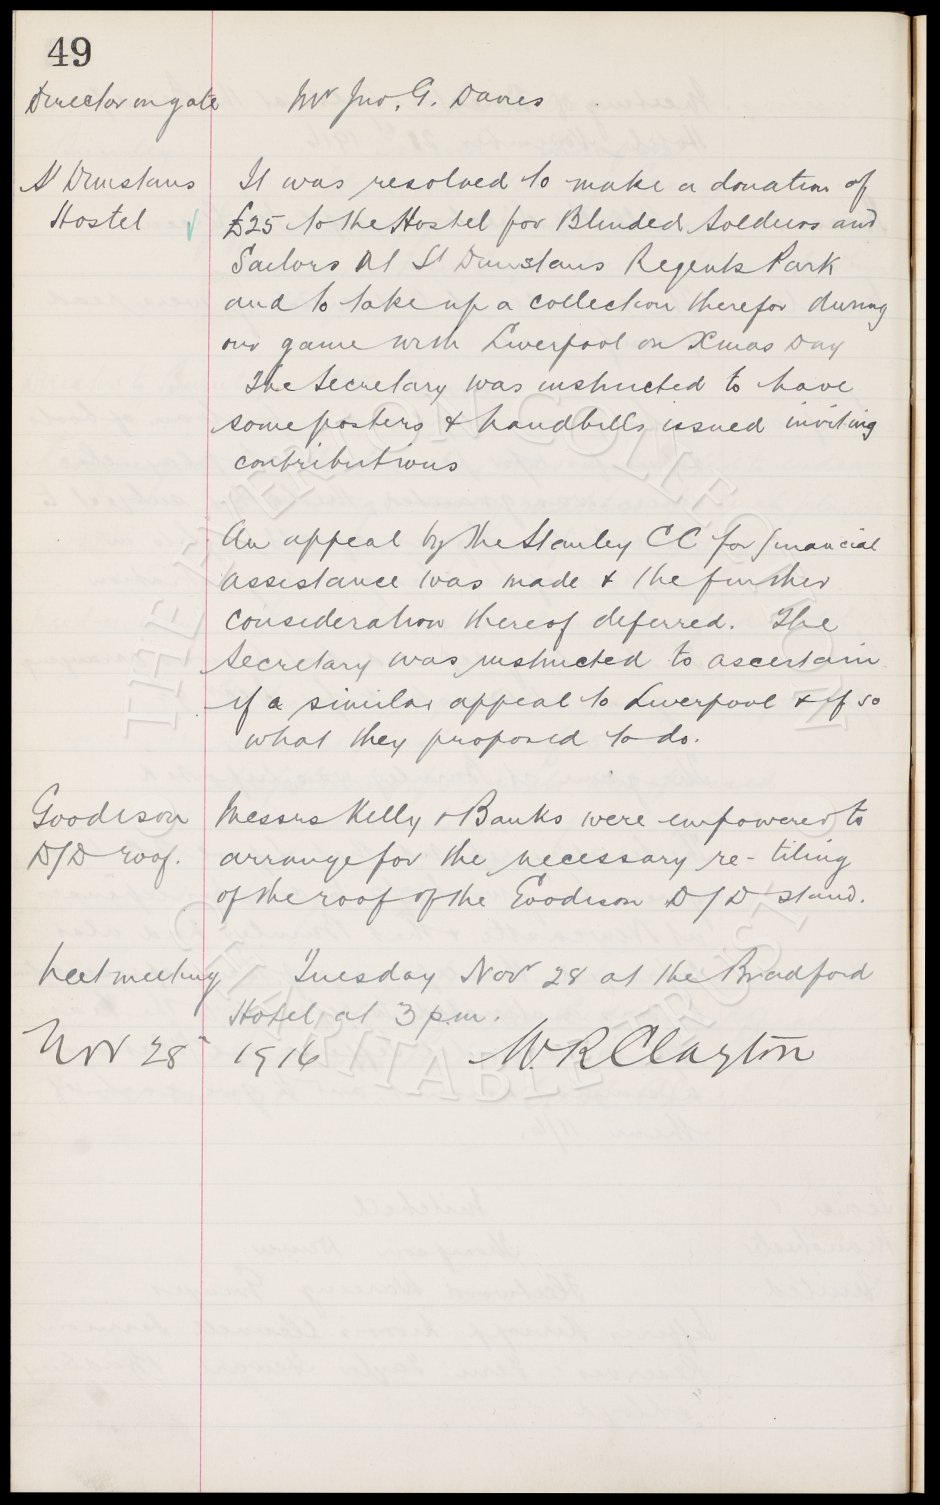 49
Director on gate Mr Jno. G. Davies
St Dunstans It was resolved to make a donation of
Hostel £25 to the Hostel for Blinded Soldiers and
Sailors at St Dunstans Regents Park
and to take up a collection therefor during
our game with Liverpool on Xmas Day
The Secretary was instructed to have
some posters & handbills issued inviting
contributions
An appeal by the Stanley CC for financial
assistance was made & the further
consideration thereof deferred. The
Secretary was instructed to ascertain
if a similar appeal to Liverpool & if so
what they proposed to do.
Goodison Messrs Kelly & Banks were empowered to
D/D roof. arrange for the necessary re-tiling
of the roof of the Goodison D/D stand.
Next meeting Tuesday Novr 28 at the Bradford
Hotel at 3 p.m.
Nov 28 1916 W. R Clayton
THE EVERTON COLLECTION
CHARITABLE TRUST